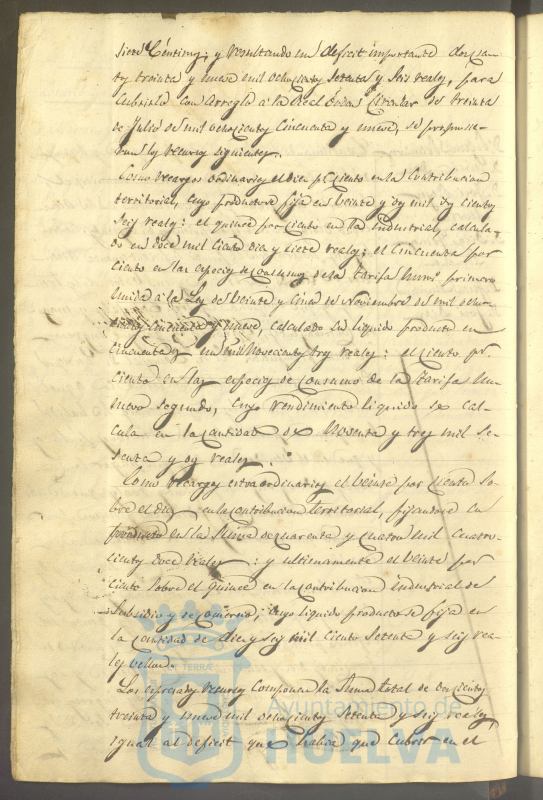 siete Céntimos; y resultando un deficit importante doscien-
tos treinta y nueve mil ochocientos setenta y seis reales, para
Cubrirlo con arreglo á la Real órden Circular de treinta
de Julio de mil ochocientos cincuenta y nueve, se propusie-
ron los recursos siguientes.
Como recargos ordinarios el diez pr ciento en la Contribucion
territorial, cuyo producto se fija en veinte y dos mil dos cientos
seis reales: el quince por ciento en la industrial, calcula-
do en doce mil ciento diez y siete reales: el cincuenta por
ciento en las especies de consumo de la tarifa numo primero
unida á la Ley de veinte y cinco de Noviembre de mil ocho-
cientos cincuenta y nueve, calculado su liquido producto en
cincuenta y un mil novecientos tres reales: el ciento pr
ciento en las especies de consumo de la tarifa nu-
mero segundo, cuyo rendimiento liquido se cal-
cula en la cantidad de noventa y tres mil se-
senta y dos reales.
Como recargos extraordinarios el veinte por ciento so-
bre el diez en la contribucion territorial, fijandose su
producto en la suma de cuarenta y cuatro mil cuatro-
cientos doce reales: y ultimamente el veinte por
ciento sobre el quince en la contribucion industrial de
subsidio y de comercio, cuyo liquido producto se fija en
la cantidad de diez y seis mil ciento setenta y seis rea-
les vellon.
Los espresados recursos componen la suma total de doscientos
treinta y nueve mil ochocientos setenta y seis reales
igual al deficit que habia que cubrir en el
Ayuntamiento de
HUELVA